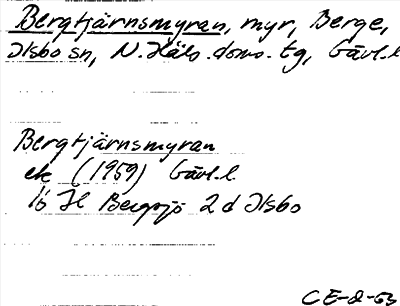 Bergtjärnsmyran, myr, Berge,
Ilsbo sn, N. Häls. doms. tg, Gävl. l
Bergtjärnsmyran
ek (1959) Gävl. l.
16 H Bergsjö 2 d Ilsbo
CE-2-53